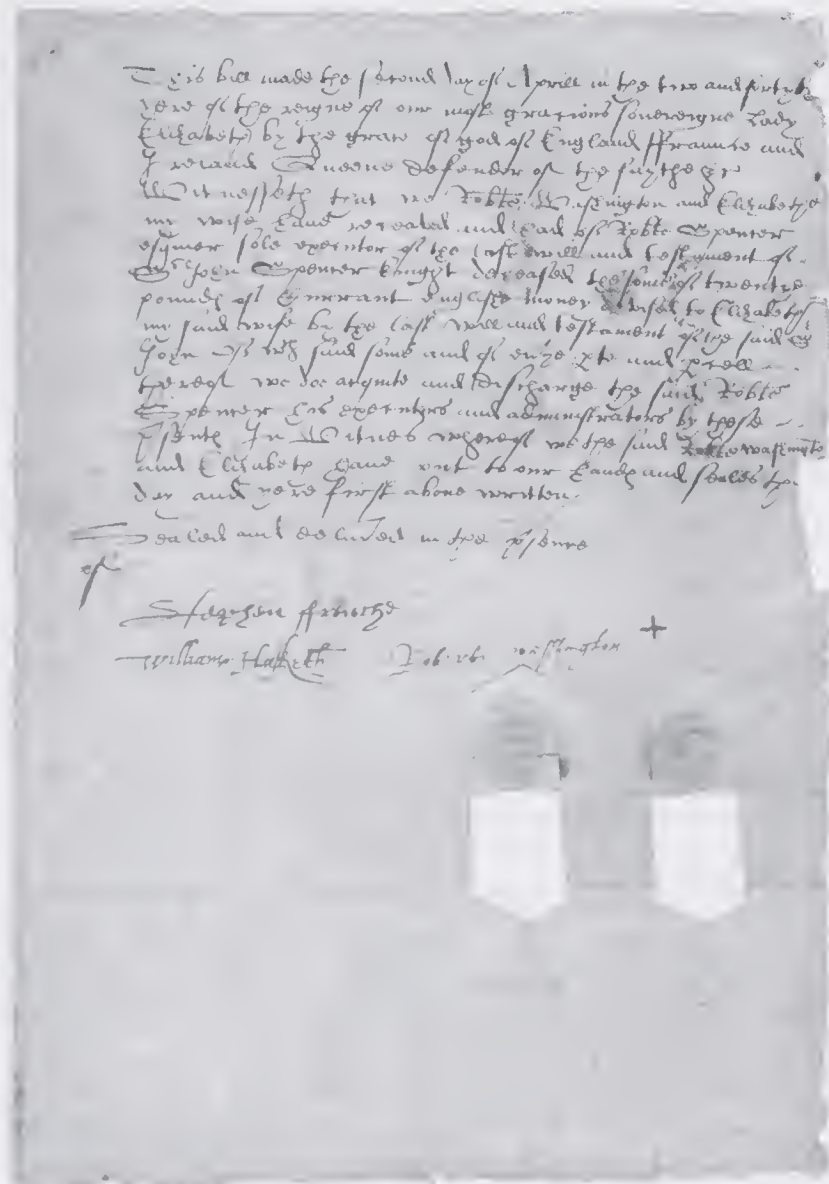 This bill made the second day of Aprill in the two and fortyth
yere of the reigne of our most gratious sovereigne Lady
Elizabeth by the grace of god of England ffraunce and
Ireland Queene defender of the faythe &c
Witnesseth that we Robte Washington and Elizabethe
my wife have receaved and had of Robte Spencer
esquier sole executor of the last will and testament of
Sr John Spencer knight deceased the some of twentie
poundς of currant englishe money devised to Elizabeth
my said wife by the last will and testament of the said Sr
John Of wch said some and of every pte and pcell
thereof we doe acquite and discharge the said Robte
Spencer his executors and administrators by these
psentς In Witnes whereof we the said Robte Washington
and Elizabeth have put to our handς and seales the
day and yere first above written.
Sealed and delivered in the psence
of
Stephen ffrenche
William Haskett Robert Wasshington +